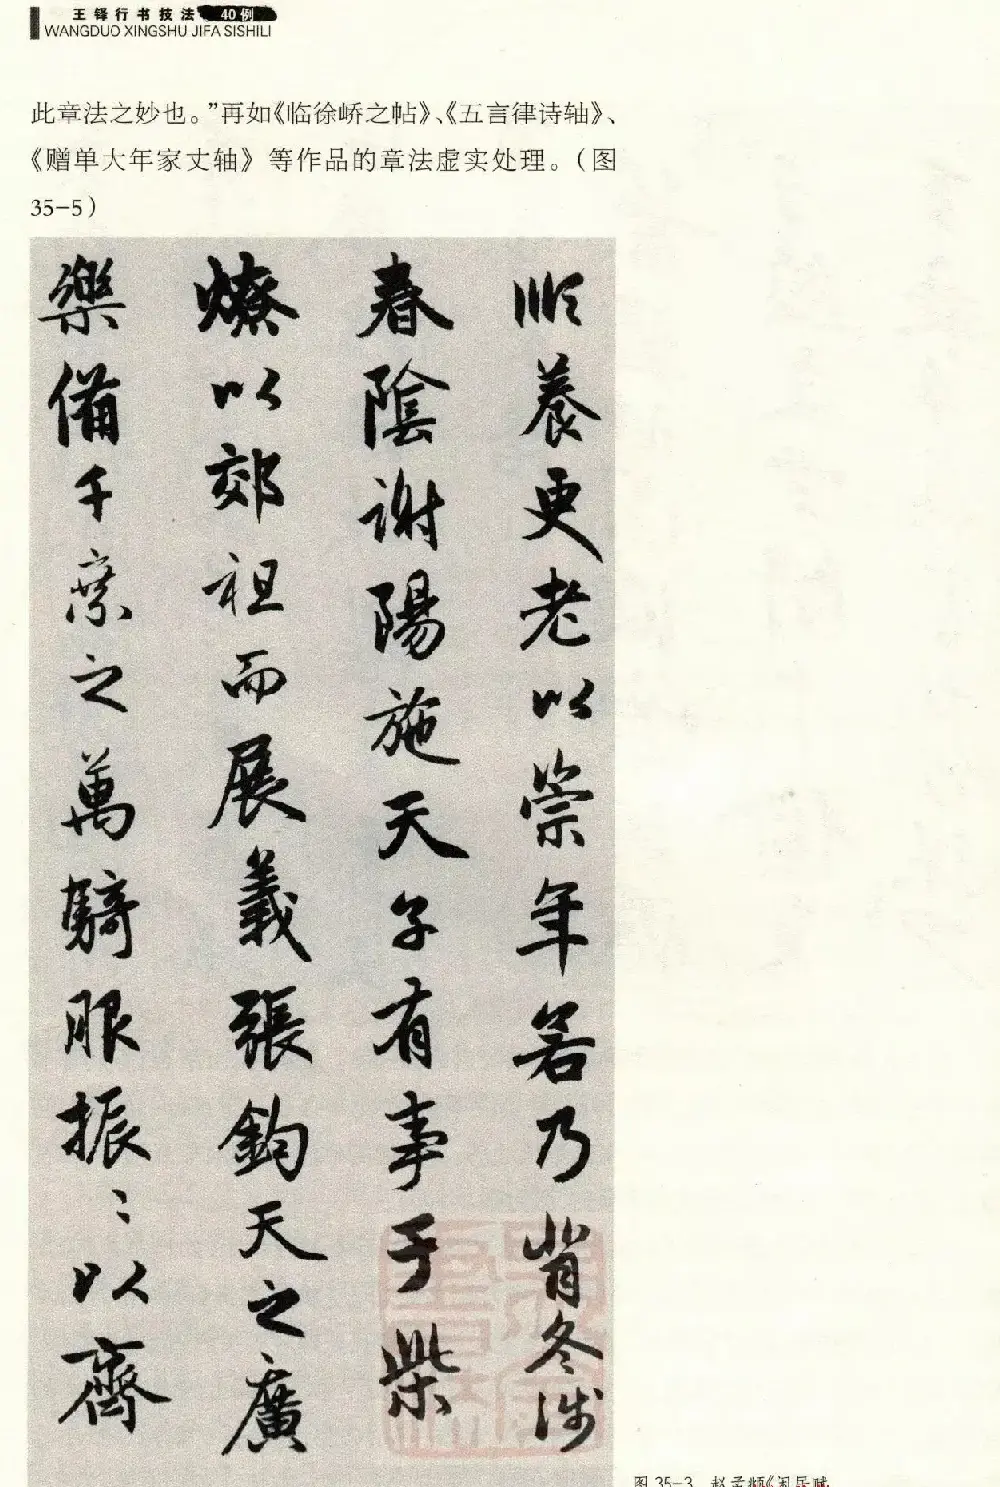 王铎行书技法40例
WANGDUO XINGSHU JIFA SISHILI
此章法之妙也。”再如《临徐峤之帖》、《五言律诗轴》、
《赠单大年家丈轴》等作品的章法虚实处理。（图
35-5）
順養更老以崇年若乃背冬涉
春陰謝陽施天子有事于柴
燎以郊祖而展義張鈞天之廣
樂備千乘之萬騎服振〻以齊
图 35-3 赵孟頫《闲居赋